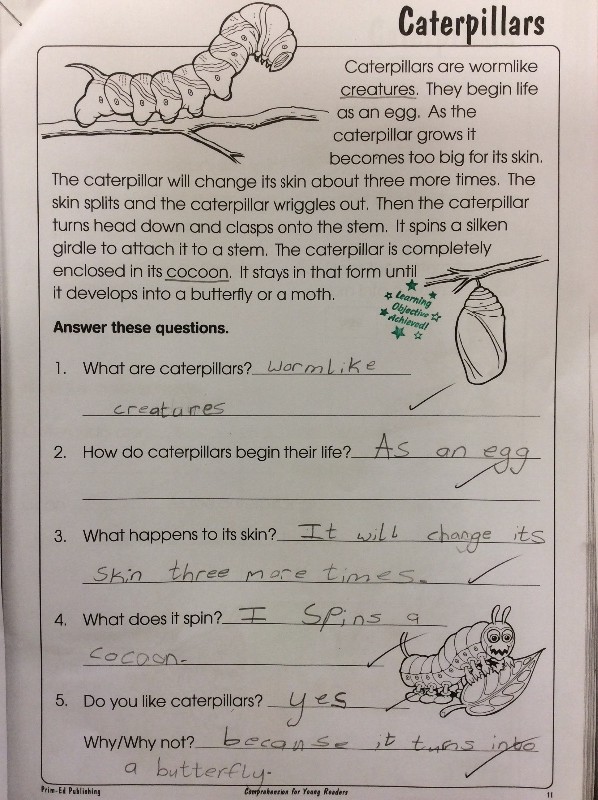 Caterpillars
Caterpillars are wormlike
creatures. They begin life
as an egg. As the
caterpillar grows it
becomes too big for its skin.
The caterpillar will change its skin about three more times. The
skin splits and the caterpillar wriggles out. Then the caterpillar
turns head down and clasps onto the stem. It spins a silken
girdle to attach it to a stem. The caterpillar is completely
enclosed in its cocoon. It stays in that form until
it develops into a butterfly or a moth.
Learning
Objective
Achieved!
Answer these questions.
1. What are caterpillars? wormlike
creatures
2. How do caterpillars begin their life? As an egg
3. What happens to its skin? It will change its
skin three more times.
4. What does it spin? I spins a
cocoon.
5. Do you like caterpillars? yes
Why/Why not? because it turns into
a butterfly.
Prim-Ed Publishing Comprehension for Young Readers 11